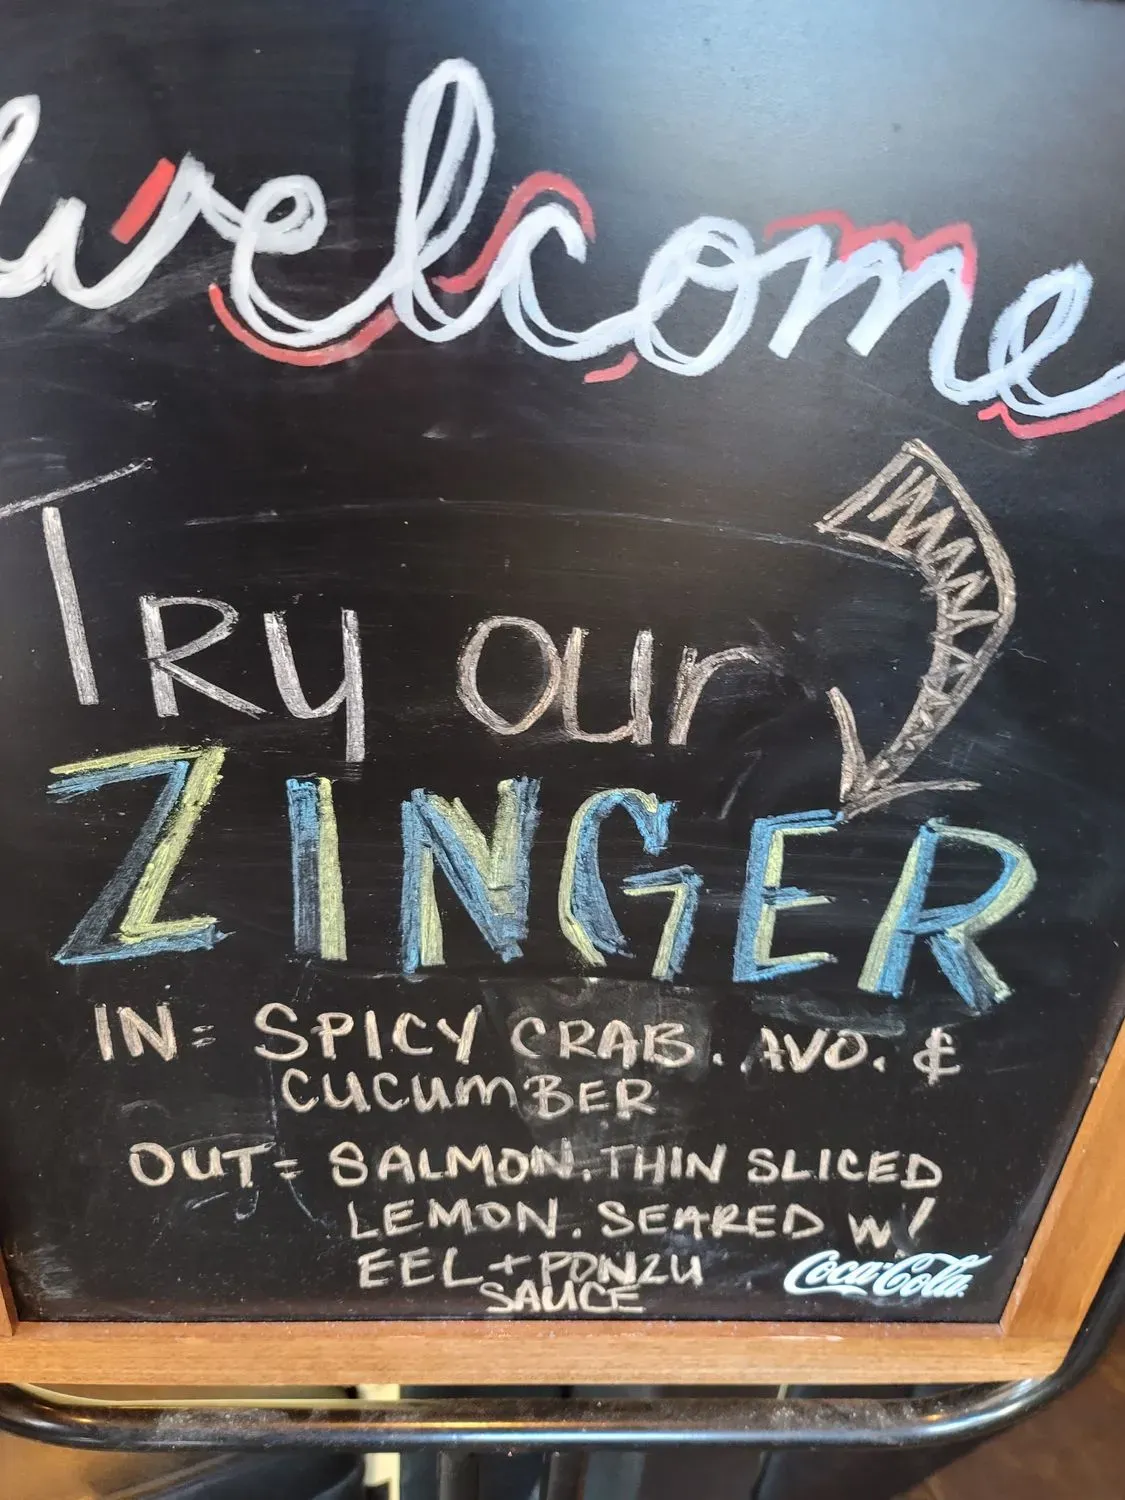 welcome
TRY our
ZINGER
IN= SPICY CRAB. AVO. &
CUCUMBER
OUT= SALMON. THIN SLICED
LEMON. SEARED W/
EEL + PONZU
SAUCE
Coca-Cola